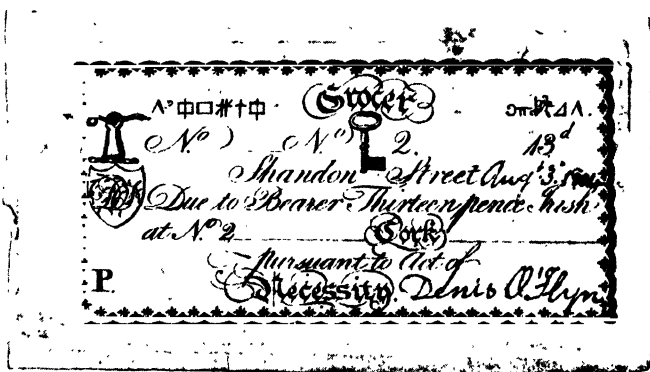 Grocer
No. No. 2. 13d
Shandon Street Aug 3.
Due to Bearer Thirteen pence Irish
at No. 2 Cork
pursuant to Act of
P. Necessity. Denis O'Flyn